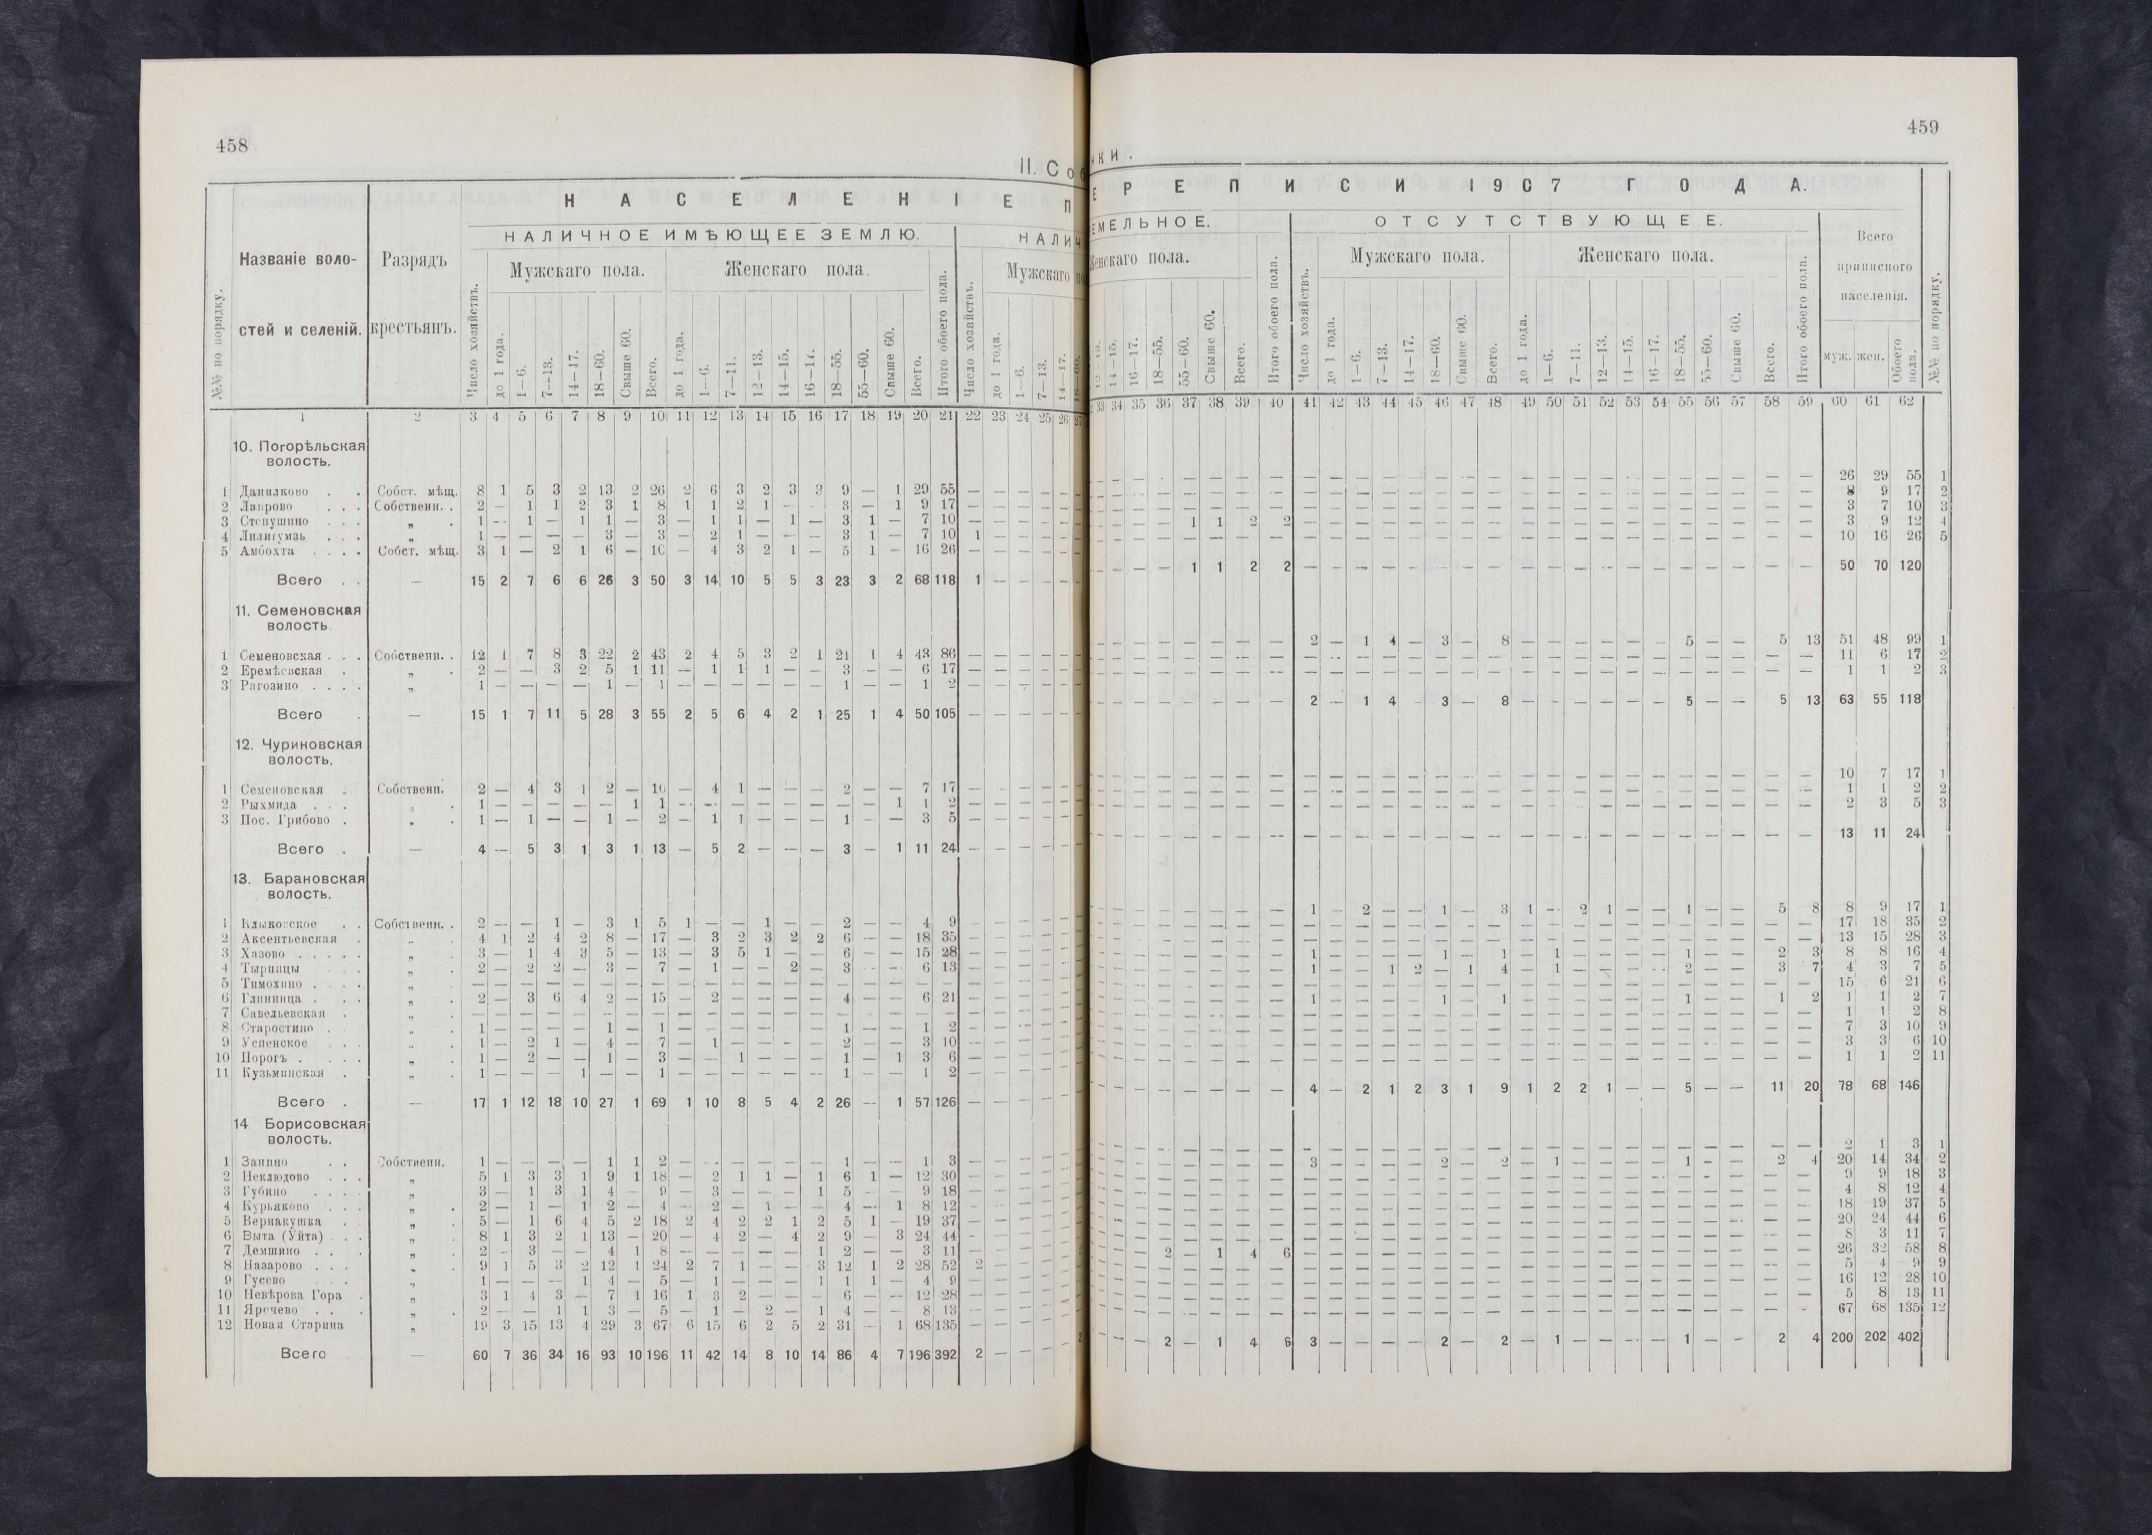 458
II. Соб
Н А С Е Л Е Н І Е П
НАЛИЧНОЕ ИМѢЮЩЕЕ ЗЕМЛЮ.
НАЛИЧ
№№ по порядку.
Названіе воло-
стей и селеній.
Разрядъ
крестьянъ.
Число хозяйствъ.
Мужскаго пола.
Женскаго пола.
Итого обоего пола.
Число хозяйствъ.
Мужскаго по
до 1 года. 1—6. 7—13. 14—17. 18—60. Свыше 60. Всего. до 1 года. 1—6. 7—11. 12—13. 14—15. 16—17. 18—55. 55—60. Свыше 60. Всего. до 1 года. 1—6. 7—13. 14—17. 18—60.
1 2 3 4 5 6 7 8 9 10 11 12 13 14 15 16 17 18 19 20 21 22 23 24 25 26 27
10. Погорѣльская
волость.
1 Данилково . . Собст. мѣщ. 8 1 5 3 2 13 2 26 2 6 3 2 3 3 9 — 1 29 55 — — — — —
2 Лаврово . . . Собственн. . 2 — 1 1 2 3 1 8 1 1 2 1 — — 3 — 1 9 17 — — — — —
3 Степушино . . . „ . 1 — 1 — 1 1 — 3 — 1 1 — 1 — 3 1 — 7 10 — — — — —
4 Лилигумзь . . . „ 1 — — — — 3 — 3 — 2 1 — — — 3 1 — 7 10 1 — — — —
5 Амбохта . . . . Собст. мѣщ. 3 1 — 2 1 6 — 10 — 4 3 2 1 — 5 1 — 16 26 — — — — —
Всего . . — 15 2 7 6 6 26 3 50 3 14 10 5 5 3 23 3 2 68 118 1 — — — —
11. Семеновская
волость.
1 Семеновская . . . Собственн. . 12 1 7 8 3 22 2 43 2 4 5 3 2 1 21 1 4 43 86 — — — — —
2 Еремѣевская . „ . 2 — — 3 2 5 1 11 — 1 1 1 — — 3 — — 6 17 — — — — —
3 Рагозино . . . . „ 1 — — — — 1 — 1 — — — — — — 1 — — 1 2 — — — — —
Всего . — 15 1 7 11 5 28 3 55 2 5 6 4 2 1 25 1 4 50 105 — — — — —
12. Чуриновская
волость.
1 Семеновская . Собственн. 2 — 4 3 1 2 — 10 — 4 1 — — — 2 — — 7 17 — — — — —
2 Рыхмида . . . „ . 1 — — — — — 1 1 — — — — — — — — 1 1 2 — — — — —
3 Пос. Грибово . „ . 1 — 1 — — 1 — 2 — 1 1 — — — 1 — — 3 5 — — — — —
Всего . — 4 — 5 3 1 3 1 13 — 5 2 — — — 3 — 1 11 24 — — — — —
13. Барановская
волость.
1 Клыковское . . Собственн. . 2 — — 1 — 3 1 5 1 — — 1 — — 2 — — 4 9 — — — — —
2 Аксентьевская . „ . 4 1 2 4 2 8 — 17 — 3 2 3 2 2 6 — — 18 35 — — — — —
3 Хазово . . . . . „ . 3 — 1 4 3 5 — 13 — 3 5 1 — — 6 — — 15 28 — — — — —
4 Тырпицы „ . 2 — 2 2 — 3 — 7 — 1 — — 2 — 3 — — 6 13 — — — — —
5 Тимохино . . . . „ . — — — — — — — — — — — — — — — — — — — — — — — —
6 Глинница . . . „ . 2 — 3 6 4 2 — 15 — 2 — — — — 4 — — 6 21 — — — — —
7 Савельевская . „ . — — — — — — — — — — — — — — — — — — — — — — — —
8 Старостино . . „ . 1 — — — — 1 — 1 — — — — — — 1 — — 1 2 — — — — —
9 Успенское . . . „ . 1 — 2 1 — 4 — 7 — 1 — — — — 2 — — 3 10 — — — — —
10 Порогъ . . . . „ . 1 — 2 — — 1 — 3 — — 1 — — — 1 — 1 3 6 — — — — —
11 Кузьминская . „ . 1 — — — 1 — — 1 — — — — — — 1 — — 1 2 — — — — —
Всего . — 17 1 12 18 10 27 1 69 1 10 8 5 4 2 26 — 1 57 126 — — — — —
14 Борисовская
волость.
1 Занино . . Собственн. 1 — — — — 1 1 2 — — — — — — 1 — — 1 3 — — — — —
2 Неклюдово . . . „ 5 1 3 3 1 9 1 18 — 2 1 1 — 1 6 1 — 12 30 — — — — —
3 Губино . . . . „ 3 — 1 3 1 4 — 9 — 3 — — — 1 5 — — 9 18 — — — — —
4 Курьяково . . . „ . 2 — 1 — 1 2 — 4 — 2 — 1 — — 4 — 1 8 12 — — — — —
5 Вернакушка . . „ 5 — 1 6 4 5 2 18 2 4 2 2 1 2 5 1 — 19 37 — — — — —
6 Выта (Уйта) . . . „ 8 1 3 2 1 13 — 20 — 4 2 — 4 2 9 — 3 24 44 — — — — —
7 Демшино . . . „ 2 — 3 — — 4 1 8 — — — — — 1 2 — — 3 11 — — — — —
8 Назарово . . . „ 9 1 5 3 2 12 1 24 2 7 1 — — 3 12 1 2 28 52 2 — — — —
9 Гусево . . . „ 1 — — — 1 4 — 5 — 1 — — — 1 1 1 — 4 9 — — — — —
10 Невѣрова Гора . „ 3 1 4 3 — 7 1 16 1 3 2 — — — 6 — — 12 28 — — — — —
11 Яречево . . . „ . 2 — — 1 1 3 — 5 — 1 — 2 — 1 4 — — 8 13 — — — — —
12 Новая Старина „ 19 3 15 13 4 29 3 67 6 15 6 2 5 2 31 — 1 68 135 — — — — —
Всего . — 60 7 36 34 16 93 10 196 11 42 14 8 10 14 86 4 7 196 392 2 — — — —
459
нки.
Е Р Е П И С И 1907 Г О Д А.
ЕМЕЛЬНОЕ.
ОТСУТСТВУЮЩЕЕ.
Женскаго пола.
Итого обоего пола.
Число хозяйствъ.
Мужскаго пола.
Женскаго пола.
Итого обоего пола.
Всего
приписного
населенія.
№№ по порядку.
12—13. 14—15. 16—17. 18—55. 55—60. Свыше 60. Всего. до 1 года. 1—6. 7—13. 14—17. 18—60. Свыше 60. Всего. до 1 года. 1—6. 7—11. 12—13. 14—15. 16—17. 18—55. 55—60. Свыше 60. Всего. муж. жен. Обоего пола.
33 34 35 36 37 38 39 40 41 42 43 44 45 46 47 48 49 50 51 52 53 54 55 56 57 58 59 60 61 62
— — — — — — — — — — — — — — — — — — — — — — — — — — — 26 29 55 1
— — — — — — — — — — — — — — — — — — — — — — — — — — — 8 9 17 2
— — — — — — — — — — — — — — — — — — — — — — — — — — — 3 7 10 3
— — — — 1 1 2 2 — — — — — — — — — — — — — — — — — — — 3 9 12 4
— — — — — — — — — — — — — — — — — — — — — — — — — — — 10 16 26 5
— — — — 1 1 2 2 — — — — — — — — — — — — — — — — — — — 50 70 120
— — — — — — — — 2 — 1 4 — 3 — 8 — — — — — — 5 — — 5 13 51 48 99 1
— — — — — — — — — — — — — — — — — — — — — — — — — — — 11 6 17 2
— — — — — — — — — — — — — — — — — — — — — — — — — — — 1 1 2 3
— — — — — — — — 2 — 1 4 — 3 — 8 — — — — — — 5 — — 5 13 63 55 118
— — — — — — — — — — — — — — — — — — — — — — — — — — — 10 7 17 1
— — — — — — — — — — — — — — — — — — — — — — — — — — — 1 1 2 2
— — — — — — — — — — — — — — — — — — — — — — — — — — — 2 3 5 3
— — — — — — — — — — — — — — — — — — — — — — — — — — — 13 11 24
— — — — — — — — 1 — 2 — — 1 — 3 1 — 2 1 — — 1 — — 5 8 8 9 17 1
— — — — — — — — — — — — — — — — — — — — — — — — — — — 17 18 35 2
— — — — — — — — — — — — — — — — — — — — — — — — — — — 13 15 28 3
— — — — — — — — 1 — — — — 1 — 1 — 1 — — — — 1 — — 2 3 8 8 16 4
— — — — — — — — 1 — — 1 2 — 1 4 — 1 — — — — 2 — — 3 7 4 3 7 5
— — — — — — — — — — — — — — — — — — — — — — — — — — — 15 6 21 6
— — — — — — — — 1 — — — — 1 — 1 — — — — — — 1 — — 1 2 1 1 2 7
— — — — — — — — — — — — — — — — — — — — — — — — — — — 1 1 2 8
— — — — — — — — — — — — — — — — — — — — — — — — — — — 7 3 10 9
— — — — — — — — — — — — — — — — — — — — — — — — — — — 3 3 6 10
— — — — — — — — — — — — — — — — — — — — — — — — — — — 1 1 2 11
— — — — — — — — 4 — 2 1 2 3 1 9 1 2 2 1 — — 5 — — 11 20 78 68 146
— — — — — — — — — — — — — — — — — — — — — — — — — — — 2 1 3 1
— — — — — — — — 3 — — — — 2 — 2 — 1 — — — — 1 — — 2 4 20 14 34 2
— — — — — — — — — — — — — — — — — — — — — — — — — — — 9 9 18 3
— — — — — — — — — — — — — — — — — — — — — — — — — — — 4 8 12 4
— — — — — — — — — — — — — — — — — — — — — — — — — — — 18 19 37 5
— — — — — — — — — — — — — — — — — — — — — — — — — — — 20 24 44 6
— — — — — — — — — — — — — — — — — — — — — — — — — — — 8 3 11 7
— — — 2 — 1 4 6 — — — — — — — — — — — — — — — — — — — 26 32 58 8
— — — — — — — — — — — — — — — — — — — — — — — — — — — 5 4 9 9
— — — — — — — — — — — — — — — — — — — — — — — — — — — 16 12 28 10
— — — — — — — — — — — — — — — — — — — — — — — — — — — 5 8 13 11
— — — — — — — — — — — — — — — — — — — — — — — — — — — 67 68 135 12
— — — 2 — 1 4 6 3 — — — — 2 — 2 — 1 — — — — 1 — — 2 4 200 202 402